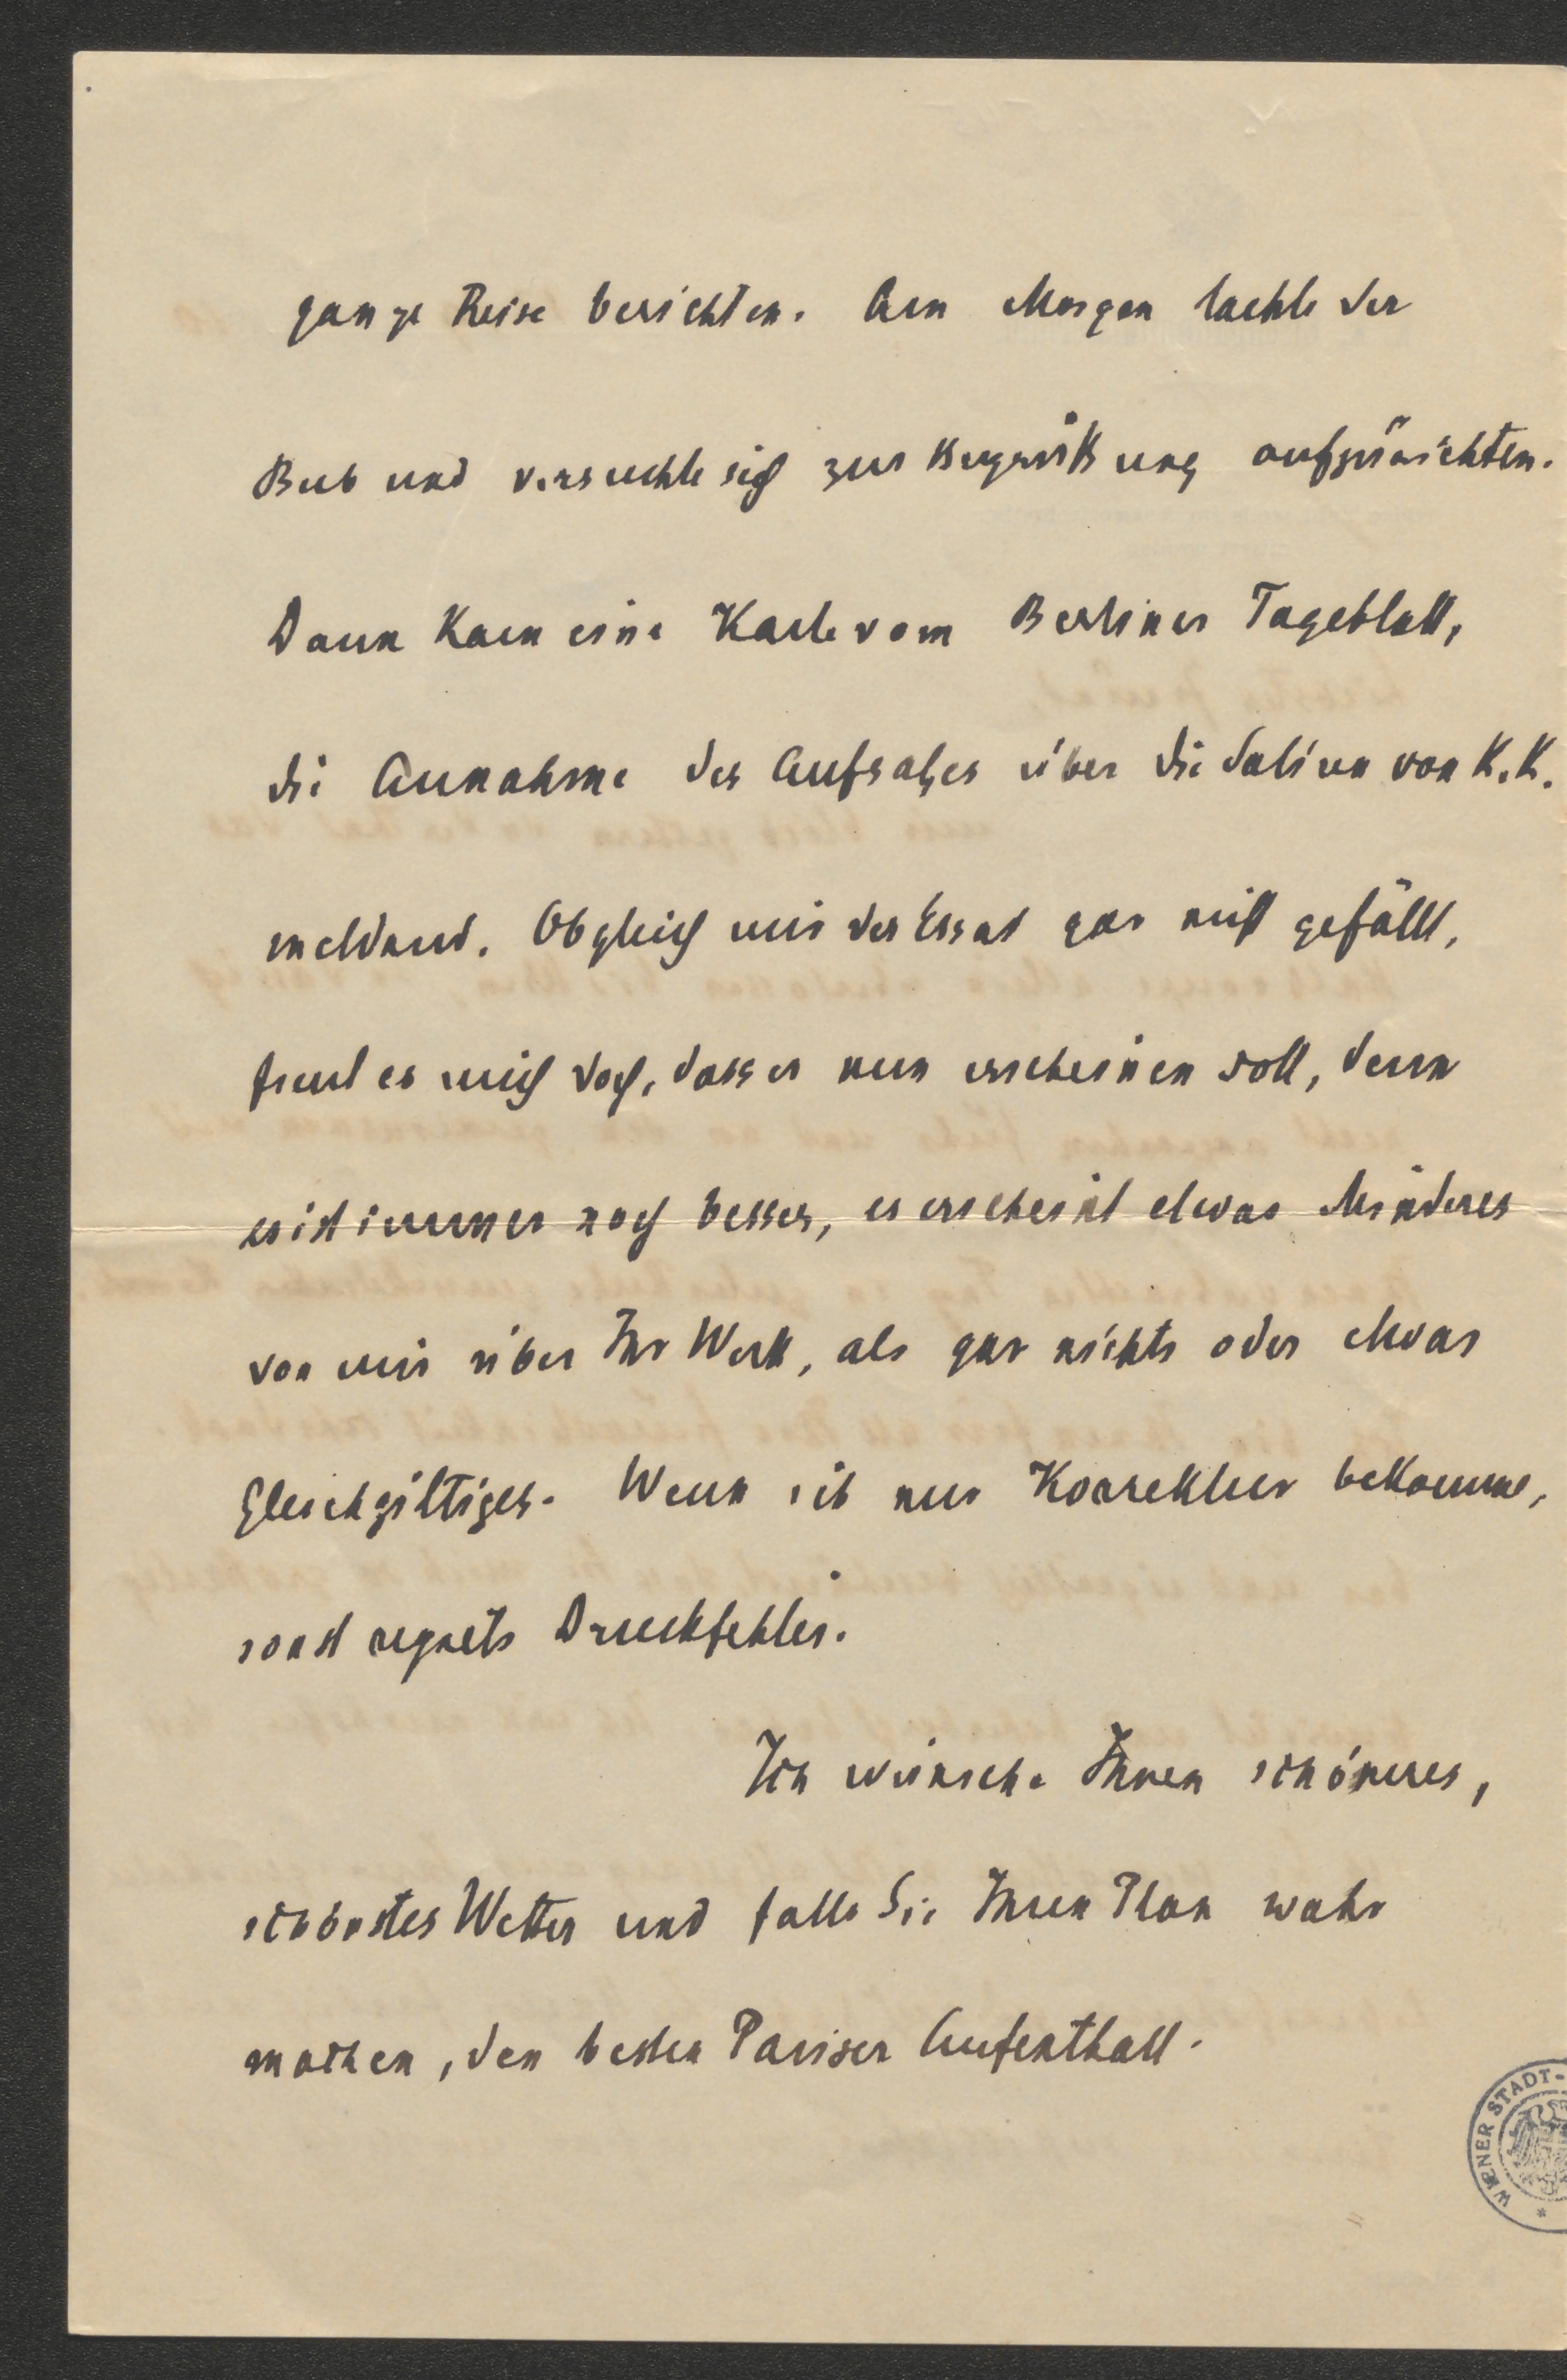 ganze Reise berichten. Am Morgen lachte der
Bub und versuchte sich zur Begrüßung aufzurichten.
Dann kam eine Karte vom Berliner Tageblatt,
die Annahme des Aufsatzes über die Satiren von K. K.
meldend. Obgleich mir der Essai gar nicht gefällt,
freut es mich doch, dass er nun erscheinen soll, denn
es ist immer noch besser, es erscheint etwas Minderes
von mir über Ihr Werk, als gar nichts oder etwas
Gleichgiltiges. Wenn ich nur Korrektur bekomme,
sonst regnets Druckfehler.
Ich wünsche Ihnen schöneres,
schönstes Wetter und falls Sie Ihren Plan wahr
machen, den besten Pariser Aufenthalt.
WIENER STADT-